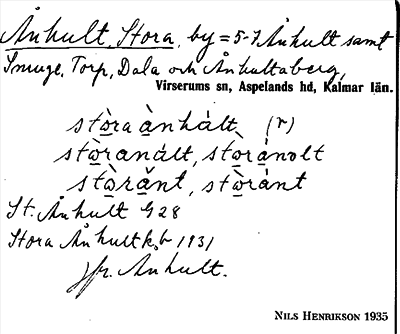 Ånhult, Stora, by = 5-7 Ånhult samt
Smuge, Torp, Dala och Ånhultaberg,
Virserums sn, Aspelands hd, Kalmar län.
stòraànhált (r)
stòranált, stòránolt
stòrănt, stòránt
St. Ånhult G 28
Stora Ånhult kb 1931
jfr. Ånhult.
NILS HENRIKSON 1935